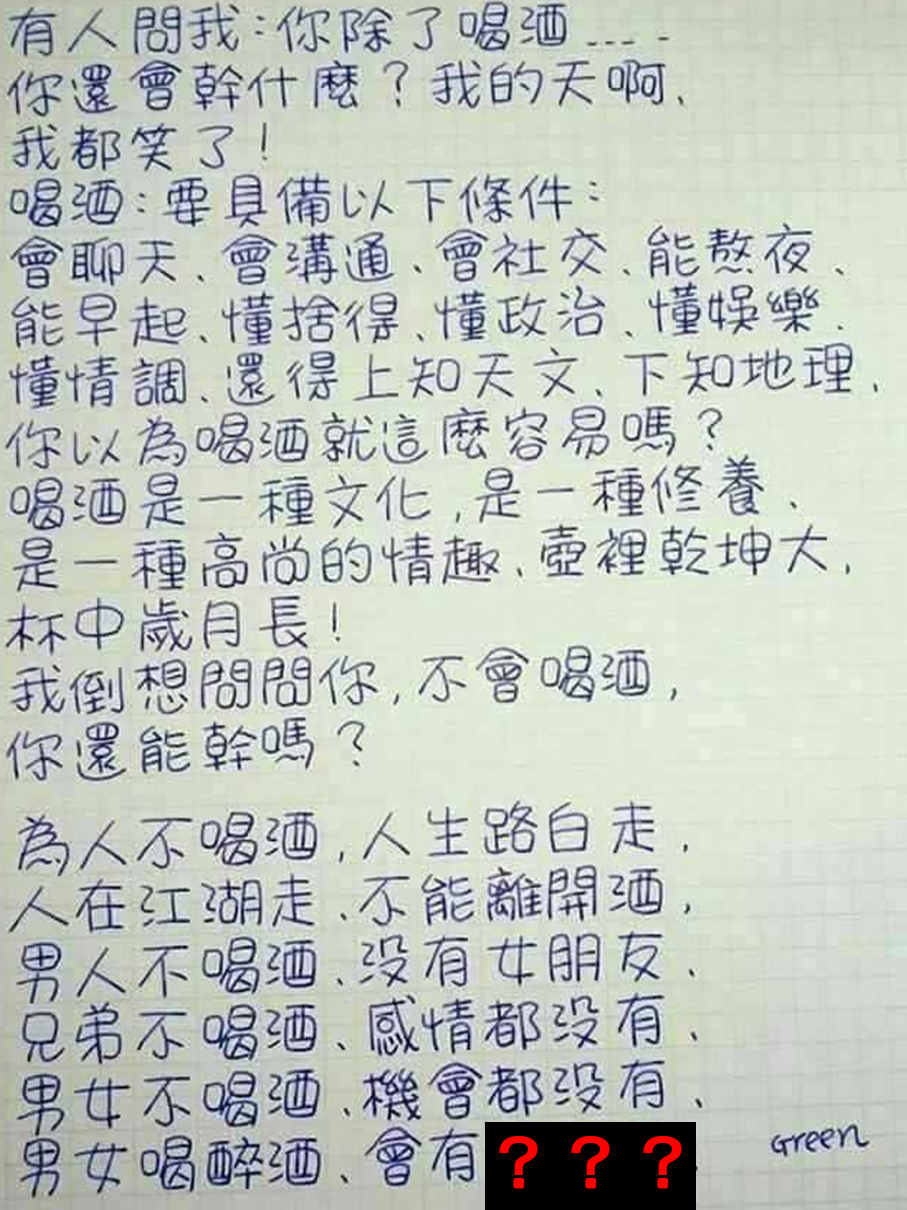 有人問我:你除了喝酒....
你還會幹什麼?我的天啊、
我都笑了!
喝酒:要具備以下條件:
會聊天、會溝通、會社交、能熬夜、
能早起、懂捨得、懂政治、懂娛樂、
懂情調、還得上知天文、下知地理,
你以為喝酒就這麼容易嗎?
喝酒是一種文化,是一種修養、
是一種高尚的情趣、壺裡乾坤大,
杯中歲月長!
我倒想問問你,不會喝酒,
你還能幹嗎?
為人不喝酒,人生路白走,
人在江湖走、不能離開酒,
男人不喝酒、没有女朋友、
兄弟不喝酒、感情都没有、
男女不喝酒、機會都没有、
男女喝醉酒、會有???
Green